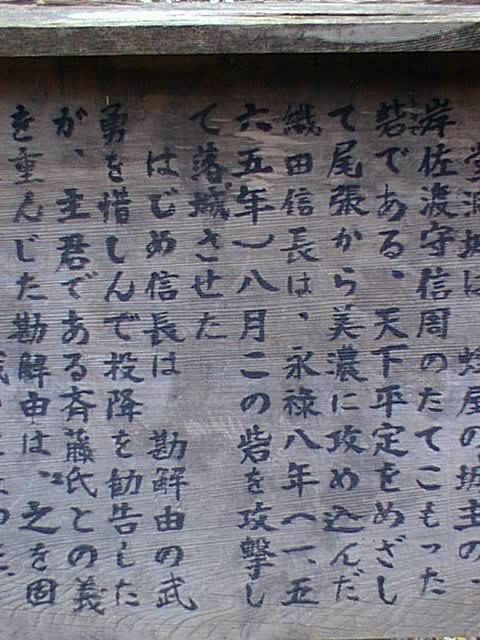 堂洞城は 蜂屋の城主の一
岸佐渡守信周のたてこもった
砦である、天下平定をめざし
て尾張から美濃に攻め込んだ
織田信長は、永禄八年(一、五
六五年)八月この砦を攻撃し
て落城させた
はじめ信長は 勘解由の武
勇を惜しんで投降を勧告した
が、主君である斉藤氏との義
を重んじた勘解由は、之を固